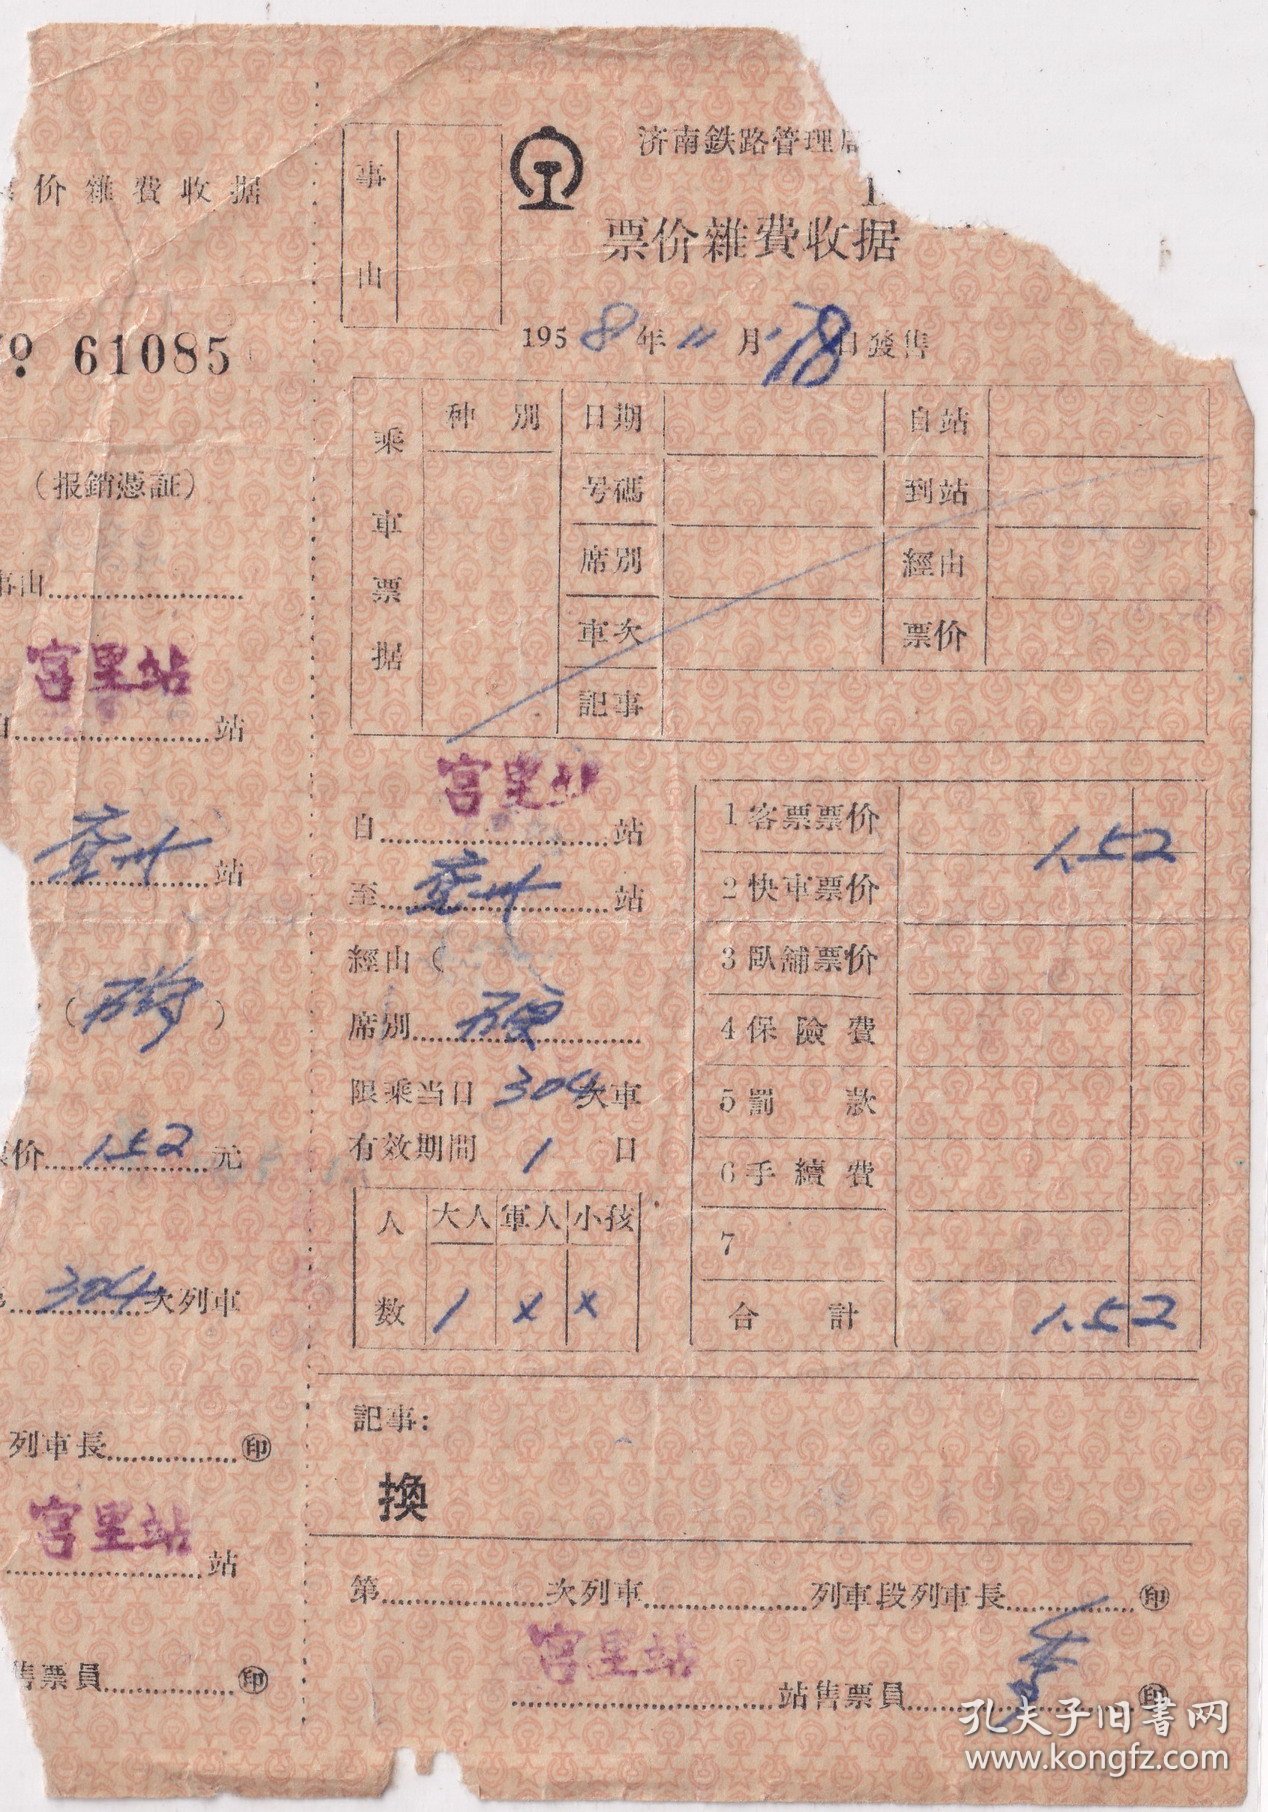 价雜費收据
No. 61085
(报銷憑証)
事由
宮里站
自 站
站
( )
票价 1.52 元
304 次列車
列車長 ㊞
宮里站
站
售票員 ㊞
事由
济南鉄路管理局
票价雜費收据
1958年11月18日發售
乘車票据
种別 日期 自站
号碼 到站
席別 經由
車次 票价
記事
宮里站
自 站
至 站
經由(
席別 硬
限乘当日 304 次車
有效期間 1 日
人数 大人 軍人 小孩
1 × ×
1 客票票价 1.52
2 快車票价
3 臥舖票价
4 保險費
5 罰款
6 手續費
7
合計 1.52
記事:
換
第 次列車 列車段列車長 ㊞
宮里站
站售票員 ㊞
孔夫子旧書网
www.kongfz.com